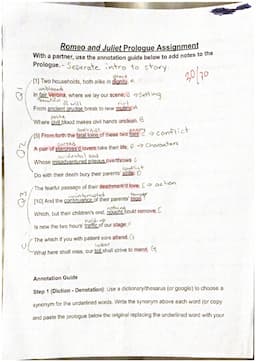 Romeo and Juliet Prologue Assignment
With a partner, use the annotation guide below to add notes to the
Prologue. - Seperate intro to story.
30/30
[1] Two households, both alike in dignity, A
In fair Verona, where we lay our scene, B → Setting
ill will
From ancient grudge break to new mutiny, A
Where civil blood makes civil hands unclean. B
[5] From forth the fatal loins of these two foes C → conflict
A pair of star-cross'd lovers take their life; D → Characters
Whose misadventured piteous overthrows C
Do with their death bury their parents' strife. D
The fearful passage of their death-mark'd love, E → action
[10] And the continuance of their parents' rage,
nothing
Which, but their children's end, nought could remove, E
Is now the two hours' traffic of our stage;
The which if you with patient ears attend, G
What here shall miss, our toil shall strive to mend. G
Q1
Q2
Q3
C
Annotation Guide
Step 1 (Diction - Denotation): Use a dictionary/thesaurus (or google) to choose a
synonym for the underlined words. Write the synonym above each word (or copy
and paste the prologue below the original replacing the underlined word with your